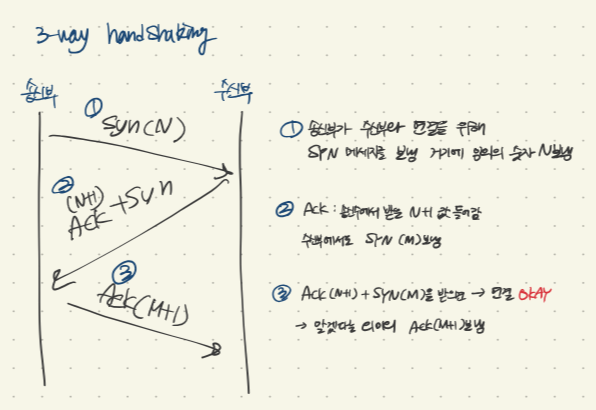 3-way handshaking
송신부 수신부
① Syn(N)
② (N+1) Ack + Syn
③ Ack(M+1)
① 송신부가 수신부와 연결을 위해
SYN 메세지를 보냄 거기에 임의의 숫자 N보냄
② Ack : 받은 N+1 값 들어감
수신부에서도 SYN (M)보냄
③ Ack(N+1) + SYN(M)을 받으면 → 연결 OKAY
→ 알겠다는 의미의 Ack(M+1)보냄